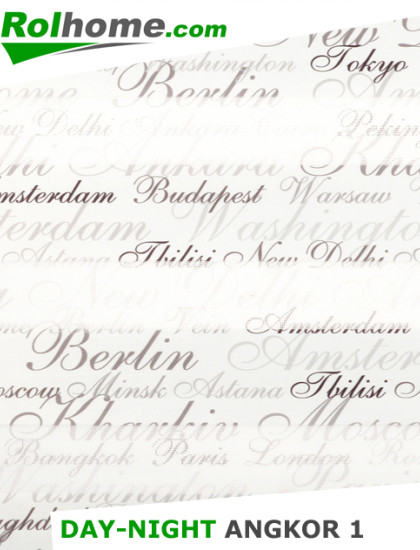 Rolhome.com
New D
Washington Tokyo
Berlin
New Delhi Ankara Pekin
Ankara Kha
msterdam Budapest Warsaw
terdam Washington
Astana Tbilisi New Delhi A
New Delhi
Berlin Amsterdam
Berlin Amster
oscow Minsk Astana Tbilisi
Kharkiv Mosco
Bangkok Paris London Ro
Washington
aghd
DAY-NIGHT ANGKOR 1